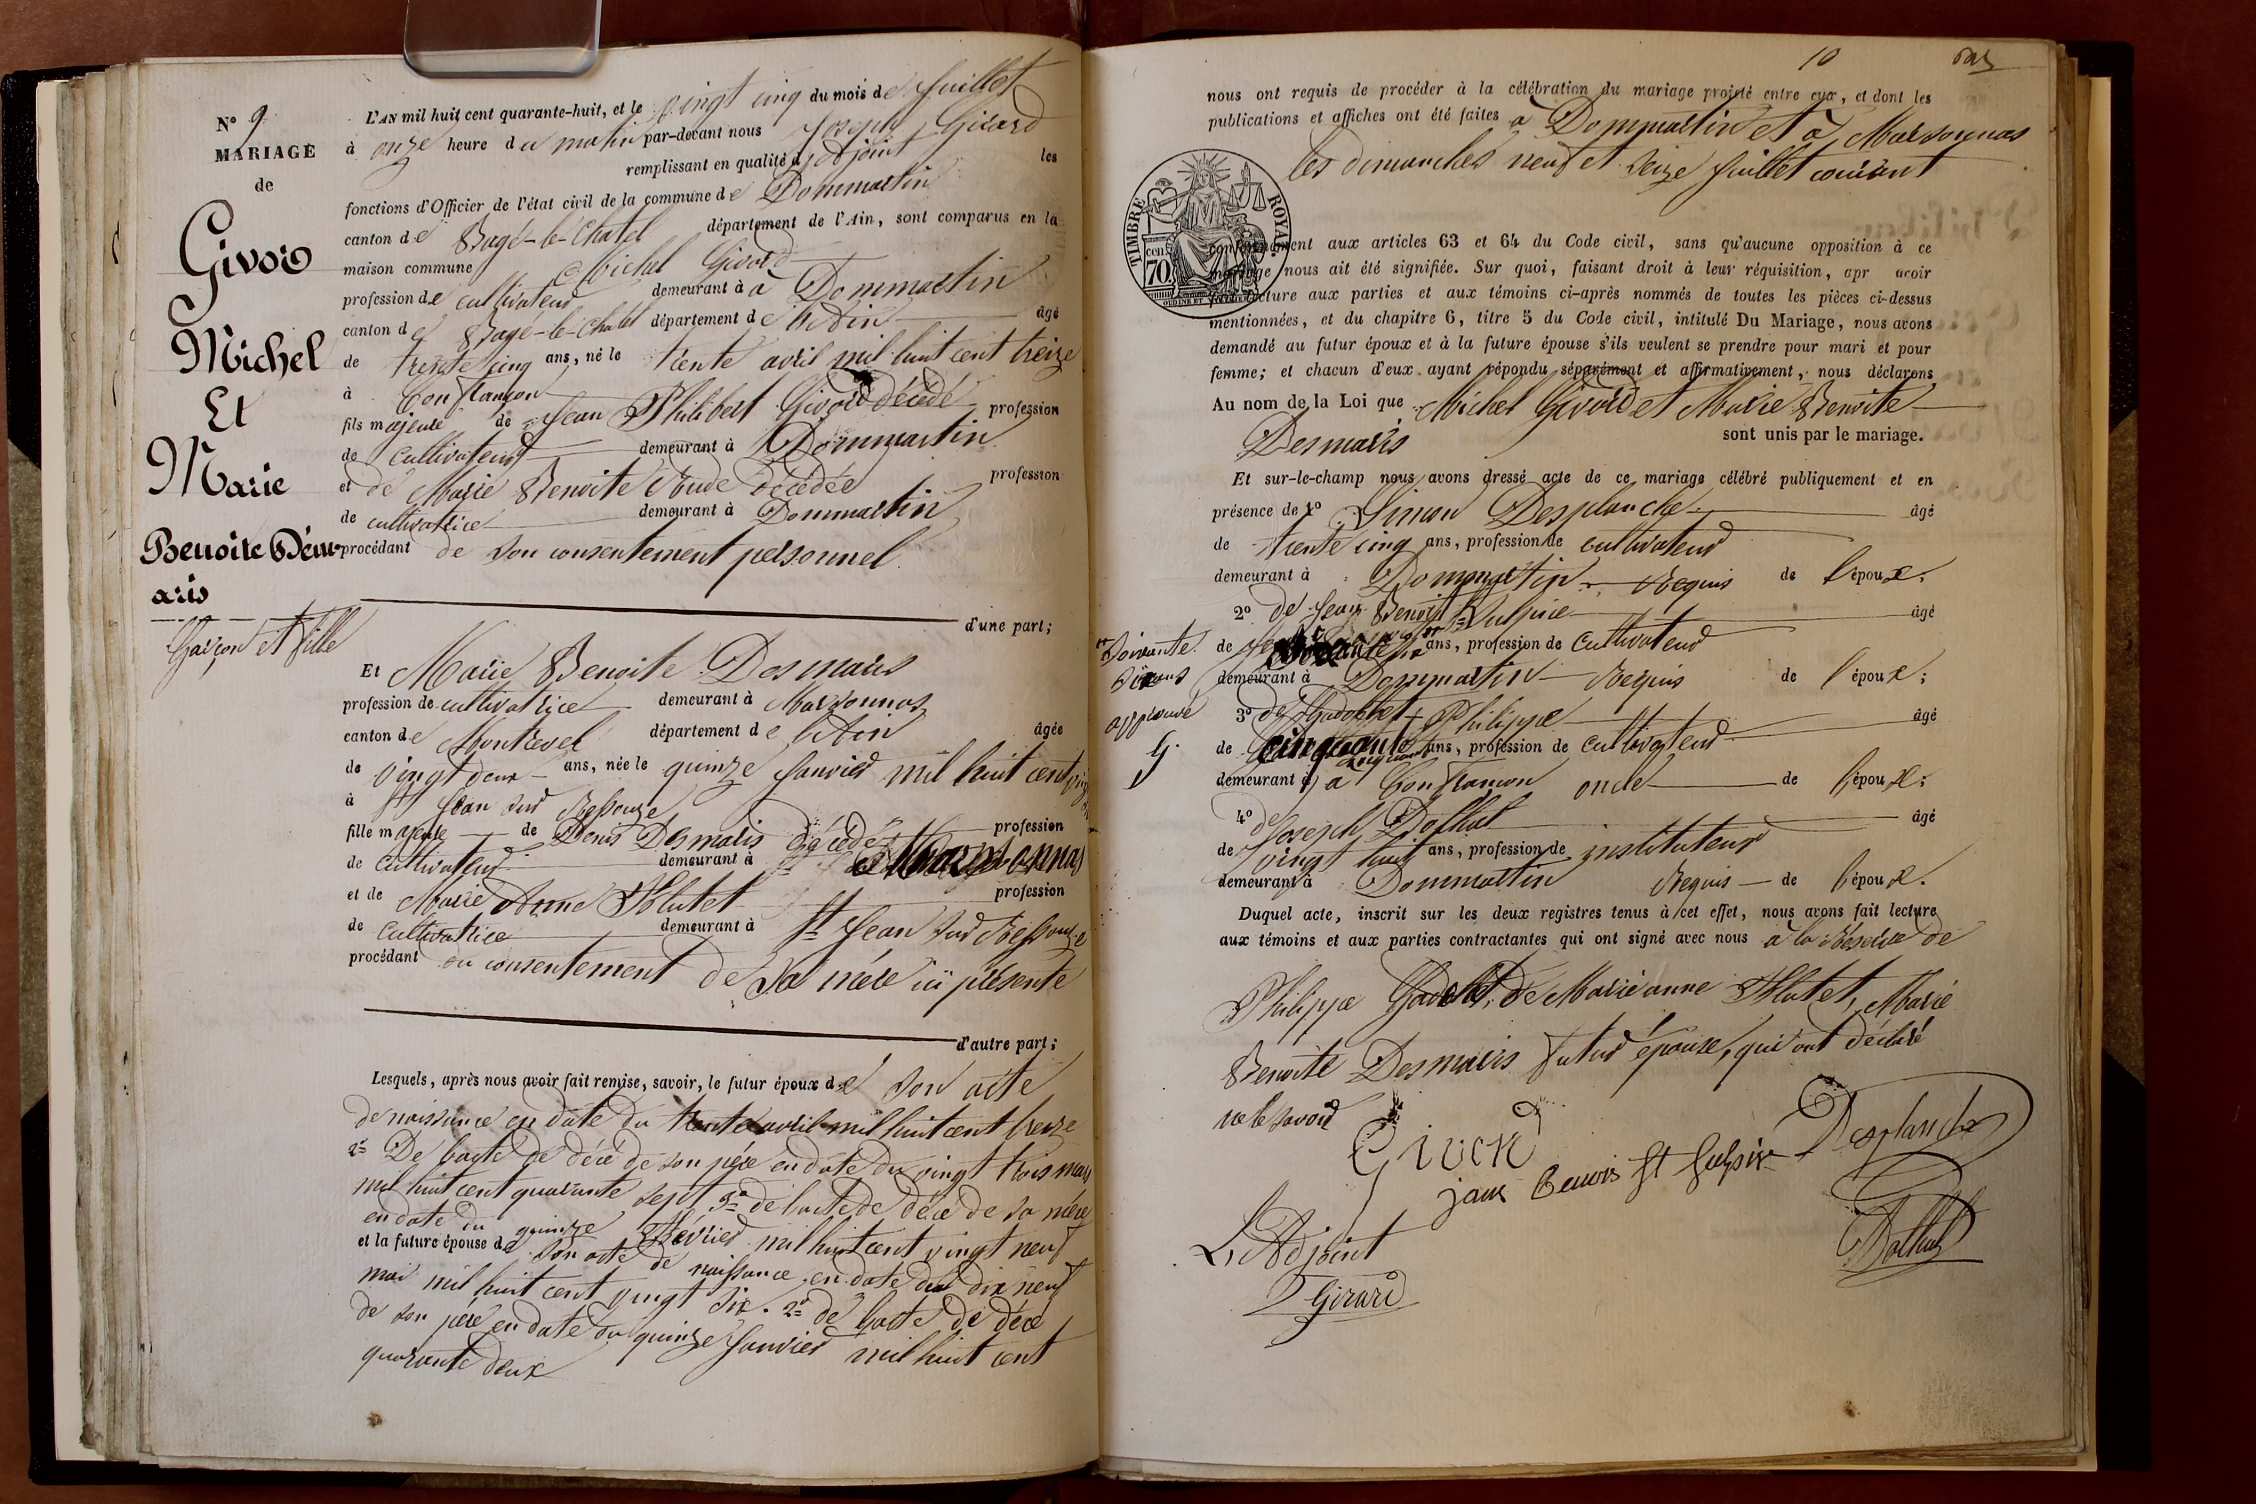 N° 9
MARIAGE
de
Givord
Michel
Et
Marie
Benoite Desm
aris
Garçon et fille
L'AN mil huit cent quarante-huit, et le vingt cinq du mois de juillet
à onze heure du matin par-devant nous Joseph Girard
remplissant en qualité d'adjoint les
fonctions d'Officier de l'état civil de la commune de Dommartin
canton de Bagé-le-Chatel département de l'Ain, sont comparus en la
maison commune Michel Givord
profession de cultivateur demeurant à à Dommartin
canton de Bagé-le-Chatel département de l'Ain âgé
de trente cinq ans, né le trente avril mil huit cent treize
à Confrançon
fils majeur de Jean Philibert Givord décédé profession
de cultivateur demeurant à Dommartin
et de Marie Benoite décédée profession
de cultivatrice demeurant à Dommartin
procédant de son consentement personnel
d'une part;
Et Marie Benoite Desmaris
profession de cultivatrice demeurant à Marsonnas
canton de Montrevel département de l'Ain âgée
de vingt deux ans, née le quinze janvier mil huit cent
à St Jean sur Reſsouze
fille majeure de Denis Desmaris décédé profession
de cultivateur demeurant à Marsonnas
et de Marie Anne profession
de cultivatrice demeurant à St Jean sur Reſsouze
procédant du consentement de sa mère ici présente
d'autre part;
Lesquels, après nous avoir fait remise, savoir, le futur époux de son acte
de naissance en date du trente avril mil huit cent treize
2° De l'acte de décé de son père en date du vingt trois mars
mil huit cent quarante sept 3° de l'acte de décé de sa mère
en date du quinze février mil huit cent vingt neuf
et la future épouse de son acte de naissance en date du dix neuf
mai mil huit cent vingt six. 2° de l'acte de décé
de son père en date du quinze janvier mil huit cent
quarante deux
10
nous ont requis de procéder à la célébration du mariage projeté entre eux, et dont les
publications et affiches ont été faites à Dommartin et à Marsonnas
les dimanches neuf et seize juillet courant
TIMBRE ROYAL
70 cen
conformément aux articles 63 et 64 du Code civil, sans qu'aucune opposition à ce
mariage nous ait été signifiée. Sur quoi, faisant droit à leur réquisition, apr avoir
fait lecture aux parties et aux témoins ci-après nommés de toutes les pièces ci-dessus
mentionnées, et du chapitre 6, titre 5 du Code civil, intitulé Du Mariage, nous avons
demandé au futur époux et à la future épouse s'ils veulent se prendre pour mari et pour
femme; et chacun d'eux ayant répondu séparément et affirmativement, nous déclarons
Au nom de la Loi que Michel Givord et Marie Benoite
Desmaris sont unis par le mariage.
Et sur-le-champ nous avons dressé acte de ce mariage célébré publiquement et en
présence de 1° Simon Desplanche âgé
de trente cinq ans, profession de cultivateur
demeurant à Dommartin Requis de l'époux;
2° de Jean Benoit St Sulpice âgé
de ans, profession de cultivateur
demeurant à Dommartin Requis de l'époux;
soixante
six ans
approuvé
G.
3° de Gadollet Philippe âgé
de cinquante ans, profession de cultivateur
demeurant à à Confrançon oncle de l'époux;
4° de Joseph Dolhat âgé
de vingt huit ans, profession de instituteur
demeurant à Dommartin Requis de l'époux.
Duquel acte, inscrit sur les deux registres tenus à cet effet, nous avons fait lecture
aux témoins et aux parties contractantes qui ont signé avec nous à la Réserve de
Philippe Gadollet, de Marie anne Marie
Benoite Desmaris future épouse, qui ont déclaré
ne le savoir
Givord
Desplanche
jan Benois St Sulpice
Dolhat
L'Adjoint
Girard